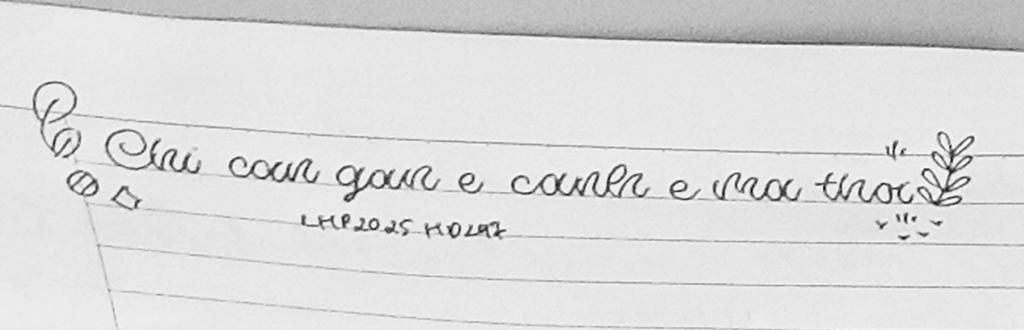 Chi can gan e canh e ma thoi
LHP2025 HD297